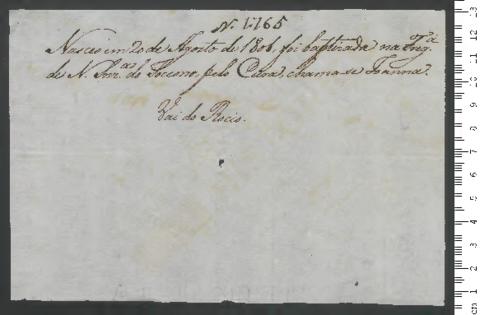 N. 1765
Nasceo em 20 de Agosto de 1806, foi baptizada na Freg.ª
de N. Snr.ª do Socorro, pelo Cura, chama-se Joanna.
Vai do Rocio.
cm 1 2 3 4 5 6 7 8 9 10 11 12 13